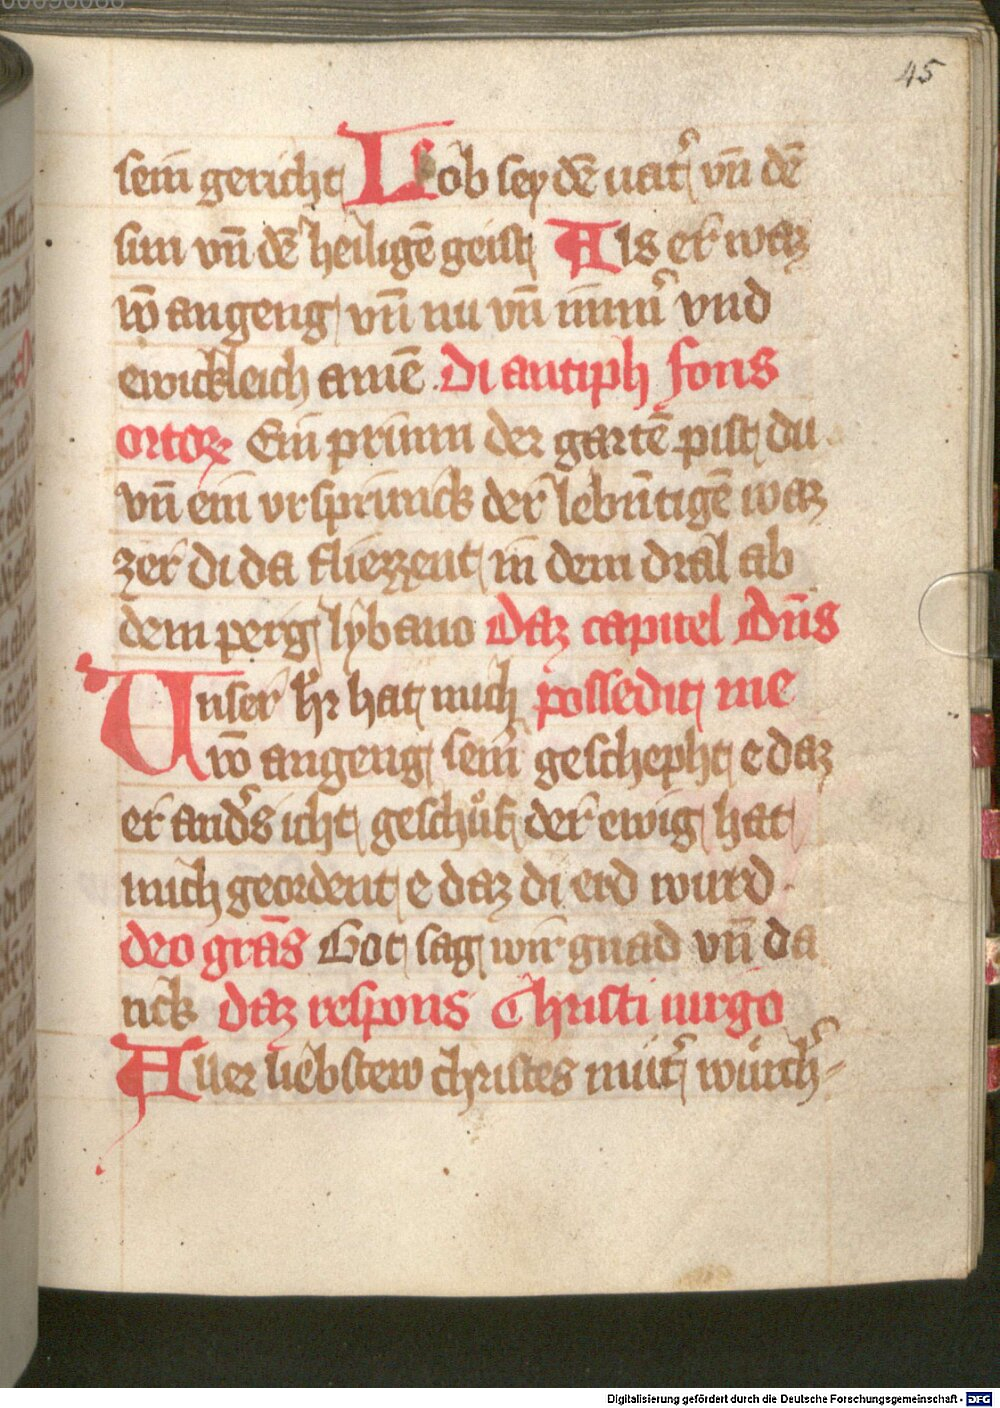 45
sein gericht Lob sey dē uat᷑ vn̄ dē
sun vn̄ dē heiligē geist Als er waz
vō angeng vn̄ nu vn̄ im̄ur vnd
ewickleich amē . di antiph fons
ortoꝝ Ein prunn der gartē pist du
vn̄ ein vrsprunck der lebn̄tigē waz
zer di da fliezzent in dem dral ab
dem perg lybano Daz capitel Dn̄s
Unser hr hat mich possedit me
vō angeng seinr geschepht e daz
er anders icht geschůf der ewig hat
mich geordent e daz di erd wurd .
deo grās Got sag wir gnad vn̄ da
nck daz respons Christi uirgo
Aller liebstew christes mut᷑
Digitalisierung gefördert durch die Deutsche Forschungsgemeinschaft - DFG